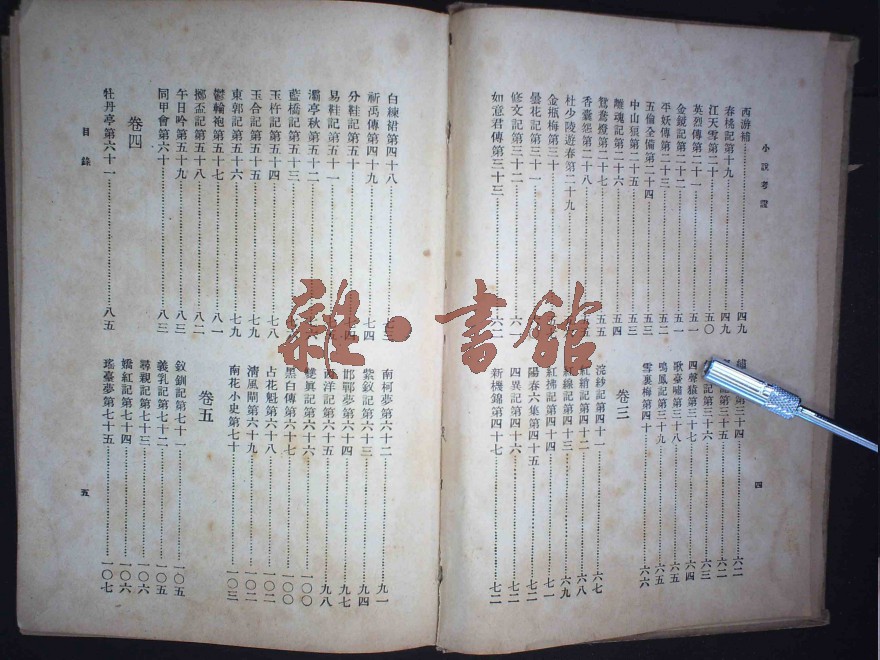 小說考證
西游補⋯⋯四九
春桃記第十九⋯⋯四九
江天雪第二十⋯⋯五〇
英烈傳第二十一⋯⋯五一
金鏡記第二十二⋯⋯五一
平妖傳第二十三⋯⋯五二
五倫全備第二十四⋯⋯五三
中山狼第二十五⋯⋯五四
離魂記第二十六⋯⋯五四
鴛鴦燈第二十七⋯⋯五五
香囊怨第二十八
杜少陵遊春第二十九
金瓶梅第三十
曇花記第三十一
修文記第三十二⋯⋯六一
如意君傳第三十三⋯⋯六二
第三十四⋯⋯六二
六二
記第三十六⋯⋯六三
四聲猿第三十七⋯⋯六四
歌臺嘯第三十八⋯⋯六五
鳴鳳記第三十九⋯⋯六五
雪裏梅第四十⋯⋯六六
卷三
浣紗記第四十一⋯⋯六七
紅綃記第四十二⋯⋯六八
紅線記第四十三⋯⋯六九
紅拂記第四十四⋯⋯七一
陽春六集第四十五⋯⋯七二
四異記第四十六⋯⋯七二
新機錦第四十七⋯⋯七二
四
白練裙第四十八
祈禹傳第四十九⋯⋯七四
分鞋記第五十
易鞋記第五十一
灞亭秋第五十二
藍橋記第五十三
玉杵記第五十四⋯⋯七八
玉合記第五十五⋯⋯七九
東郭記第五十六⋯⋯七九
鬱輪袍第五十七⋯⋯八一
擲盃記第五十八⋯⋯八二
午日吟第五十九⋯⋯八三
同甲會第六十⋯⋯八三
卷四
牡丹亭第六十一⋯⋯八五
南柯夢第六十二⋯⋯九一
紫釵記第六十三⋯⋯九四
邯鄲夢第六十四⋯⋯九七
西洋記第六十五⋯⋯九八
雙眞記第六十六⋯⋯一〇〇
黑白傳第六十七⋯⋯一〇〇
占花魁第六十八⋯⋯一〇二
清風閘第六十九⋯⋯一〇二
南花小史第七十⋯⋯一〇三
卷五
釵釧記第七十一⋯⋯一〇五
義乳記第七十二⋯⋯一〇五
尋親記第七十三⋯⋯一〇六
嬌紅記第七十四⋯⋯一〇六
瑤臺夢第七十五⋯⋯一〇七
目錄
五
雜·書館